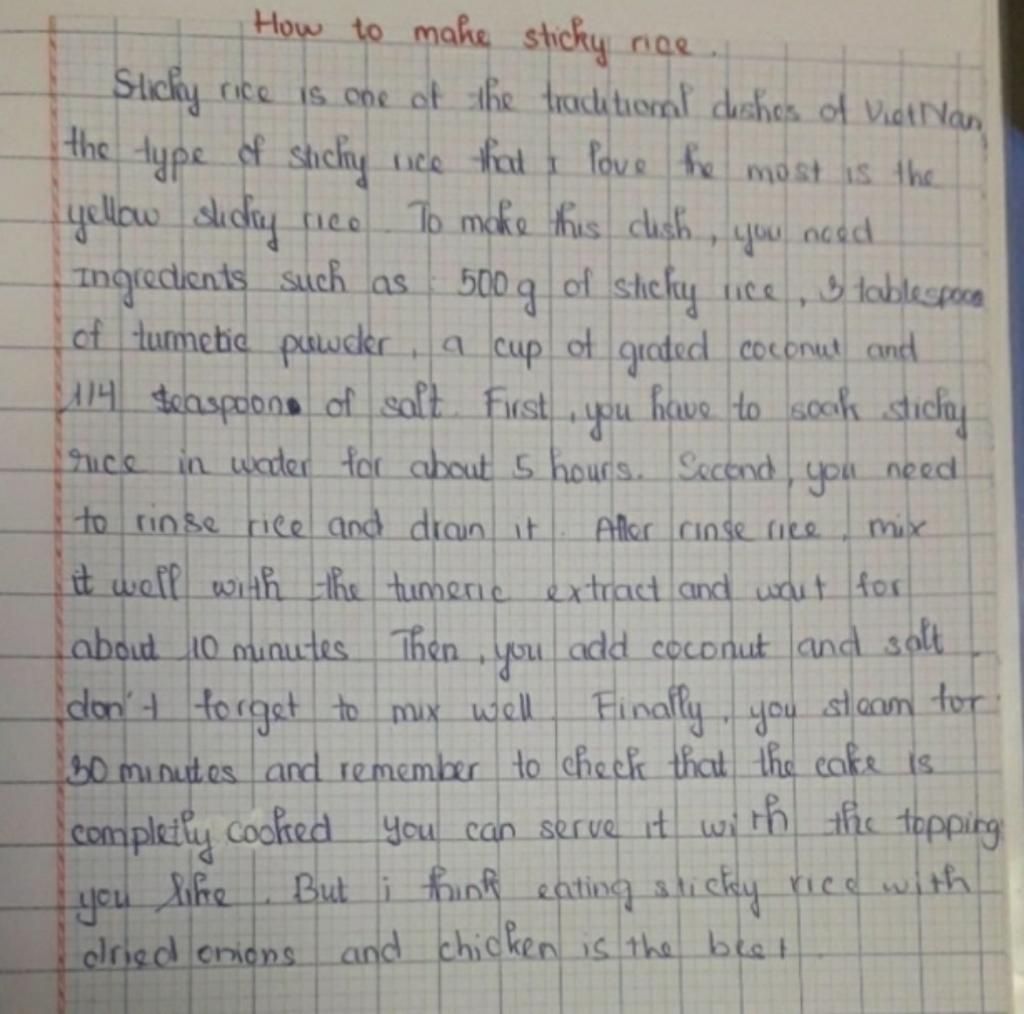 How to make sticky rice.
Sticky rice is one of the traditional dishes of VietNam,
the type of sticky rice that I love the most is the
yellow sticky rice. To make this dish, you need
ingredients such as : 500g of sticky rice, 3 tablespoon
of turmetic puwder, a cup of grated coconut and
1/4 teaspoons of salt. First, you have to soak sticky
rice in water for about 5 hours. Second, you need
to rinse rice and drain it. After rinse rice, mix
it well with the tumeric extract and wait for
about 10 minutes. Then, you add coconut and salt.
don't forget to mix well. Finally, you steam for
30 minutes and remember to check that the cake is
completly cooked you can serve it with the topping
you like. But i think eating sticky rice with
dried onions and chicken is the best